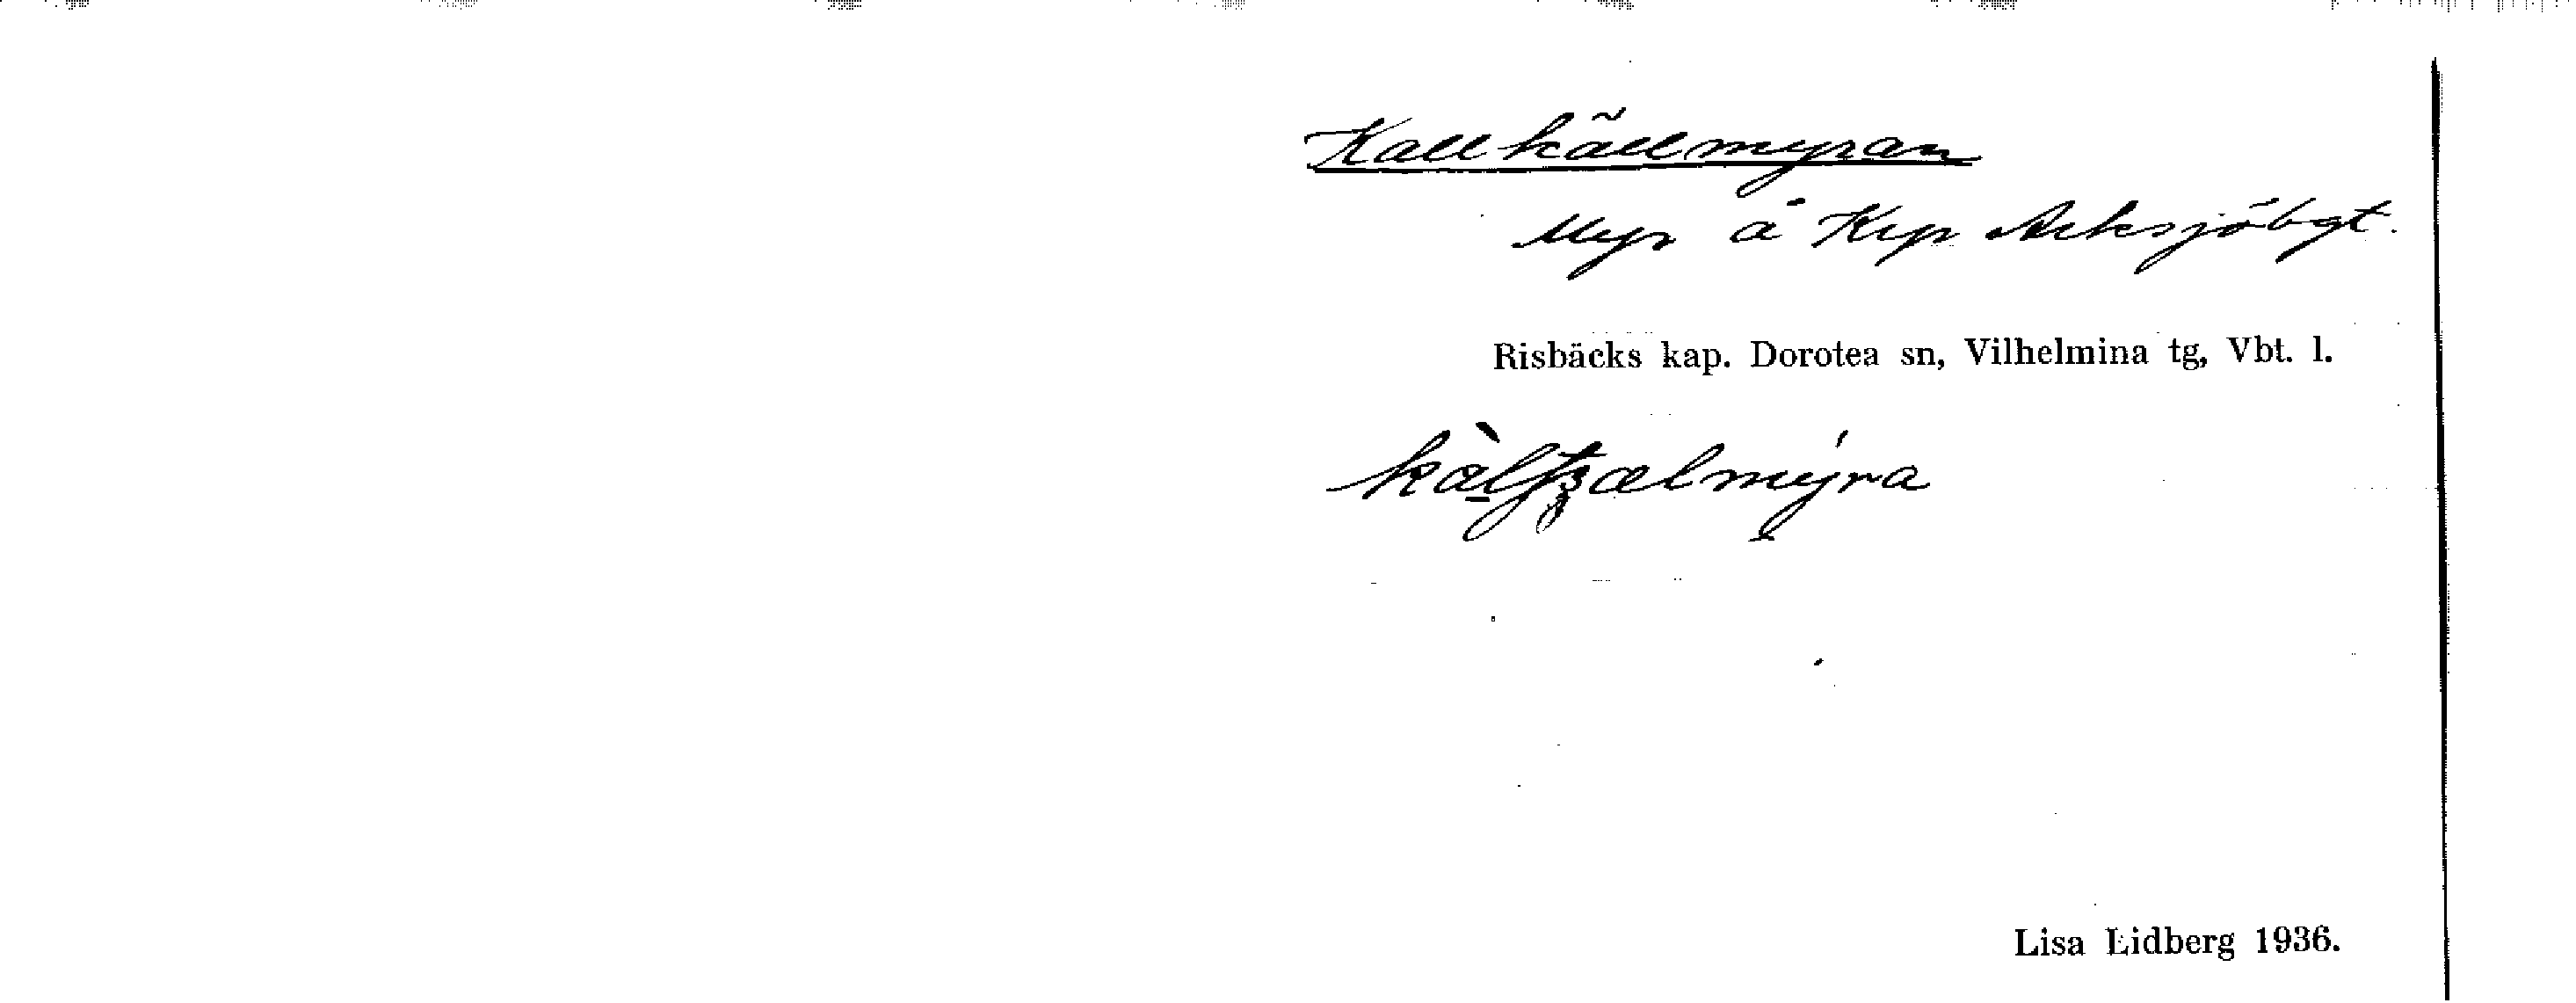 Kallkällmyran
Myr å Krp Arksjöbgt.
Risbäcks kap. Dorotea sn, Vilhelmina tg, Vbt. l.
Lisa Lidberg 1936.